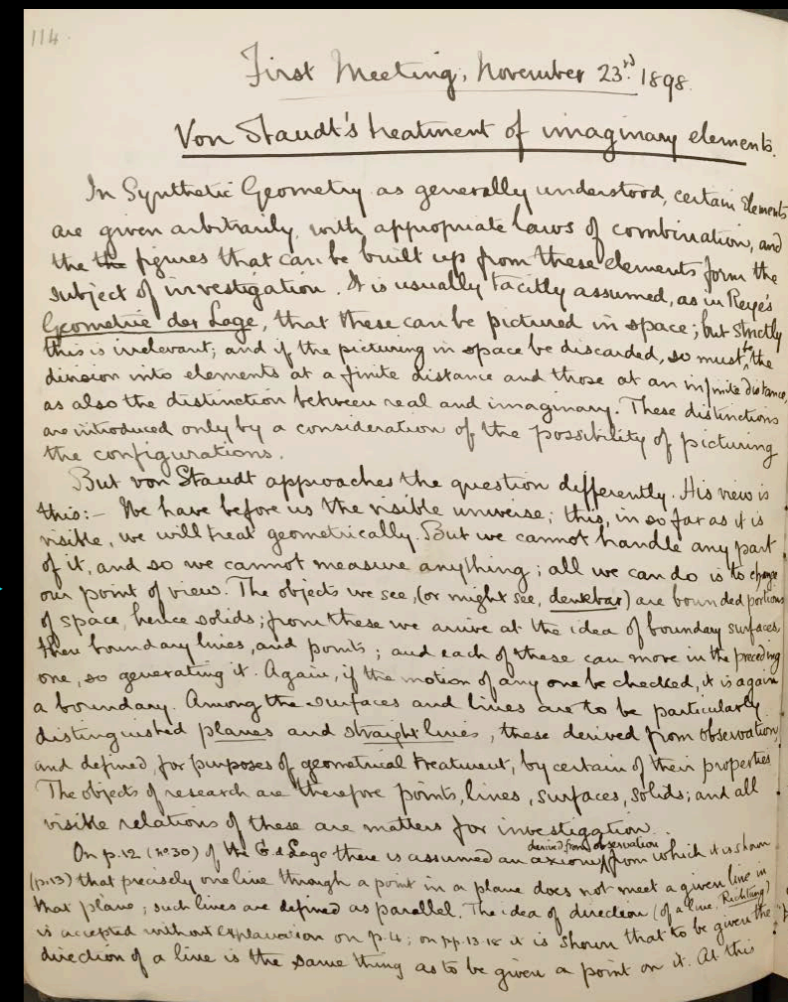 114
First Meeting, November 23rd. 1898.
Von Staudt's treatment of imaginary elements.
In Synthetic Geometry as generally understood, certain elements
are given arbitrarily, with appropriate laws of combination, and
the the figures that can be built up from these elements form the
subject of investigation. It is usually tacitly assumed, as in Reye's
Geometrie der Lage, that these can be pictured in space; but strictly
this is irrelevant; and if the picturing in space be discarded, so must the
division into elements at a finite distance and those at an infinite distance,
as also the distinction between real and imaginary. These distinctions
are introduced only by a consideration of the possibility of picturing
the configurations.
But von Staudt approaches the question differently. His view is
this:– We have before us the visible universe; this, in so far as it is
visible, we will treat geometrically. But we cannot handle any part
of it, and so we cannot measure anything; all we can do is to change
our point of view. The objects we see, (or might see, denkbar) are bounded portions
of space, hence solids; from these we arrive at the idea of boundary surfaces,
then boundary lines, and points; and each of these can move in the preceding
one, so generating it. Again, if the motion of any one be checked, it is again
a boundary. Among the surfaces and lines are to be particularly
distinguished planes and straight lines, these derived from observation,
and defined, for purposes of geometrical treatment, by certain of their properties
The objects of research are therefore points, lines, surfaces, solids; and all
visible relations of these are matters for investigation.
derived from observation
On p.12 (no 30) of the G. d. Lage there is assumed an axiom from which it is shown
(p.13) that precisely one line through a point in a plane does not meet a given line in
that plane; such lines are defined as parallel. The idea of direction (of a line, Richtung)
is accepted without explanation on p.4; on pp.13-15 it is shown that to be given the
direction of a line is the same thing as to be given a point on it. At this